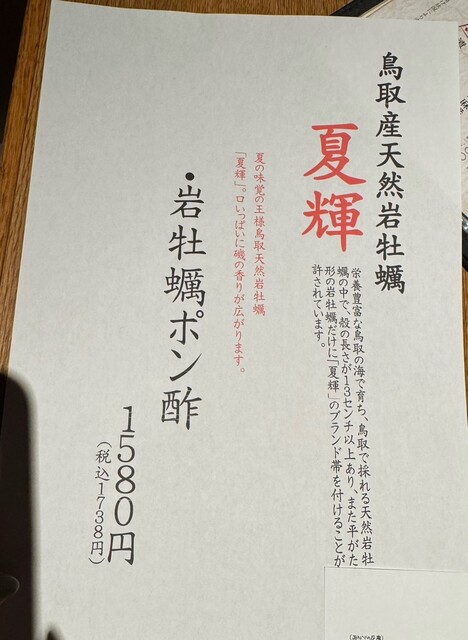 鳥取産天然岩牡蠣
夏輝
栄養豊富な鳥取の海で育ち、鳥取で採れる天然岩牡
蠣の中で、殻の長さが13センチ以上あり、また平がた
形の岩牡蠣だけに「夏輝」のブランド帯を付けることが
許されています。
夏の味覚の王様鳥取天然岩牡蠣
「夏輝」。口いっぱいに磯の香りが広がります。
・岩牡蠣ポン酢
1580円
(税込1738円)